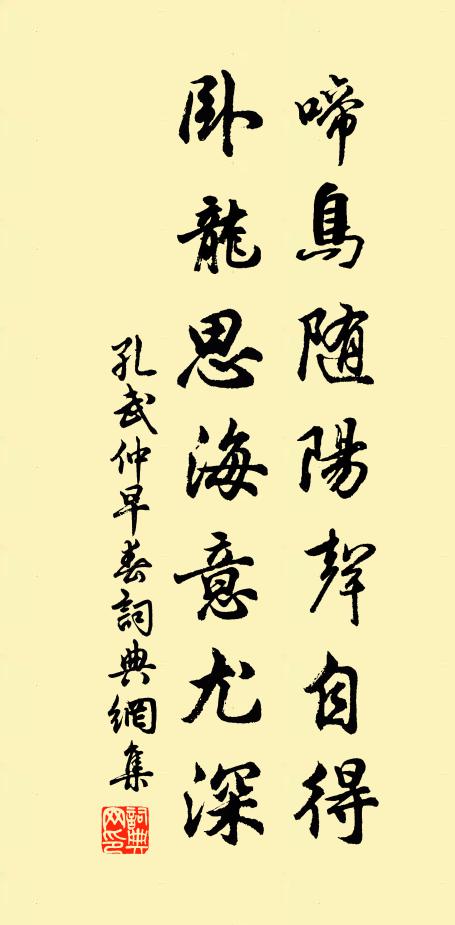 啼鳥随陽聲自得
卧龍思海意尤深
孔武仲早春詞典網集
詞典網印